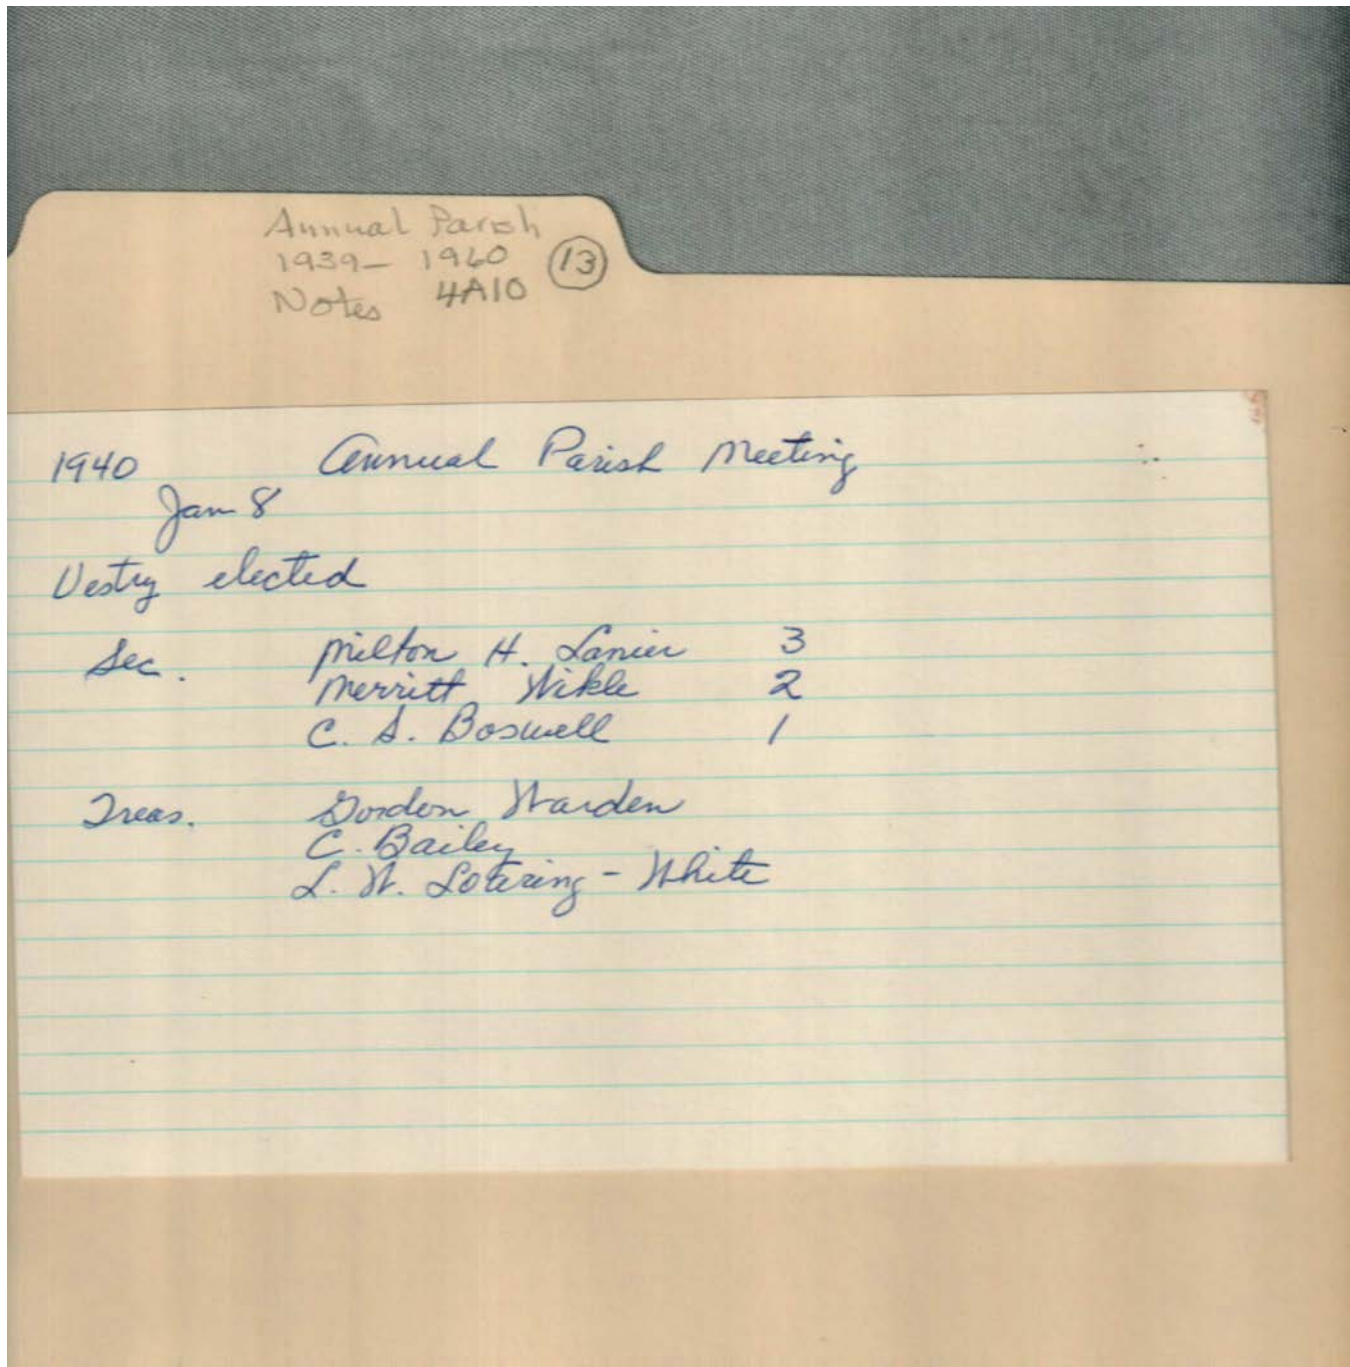 Annual Parish
1939- 1960 13
Notes 4A10
1940 Annual Parish Meeting
Jan 8
Vestry elected
Sec. Milton H. Lanier 3
Merritt Wikle 2
C. S. Boswell 1
Treas. Gordon Warden
C. Bailey
L. W. - White